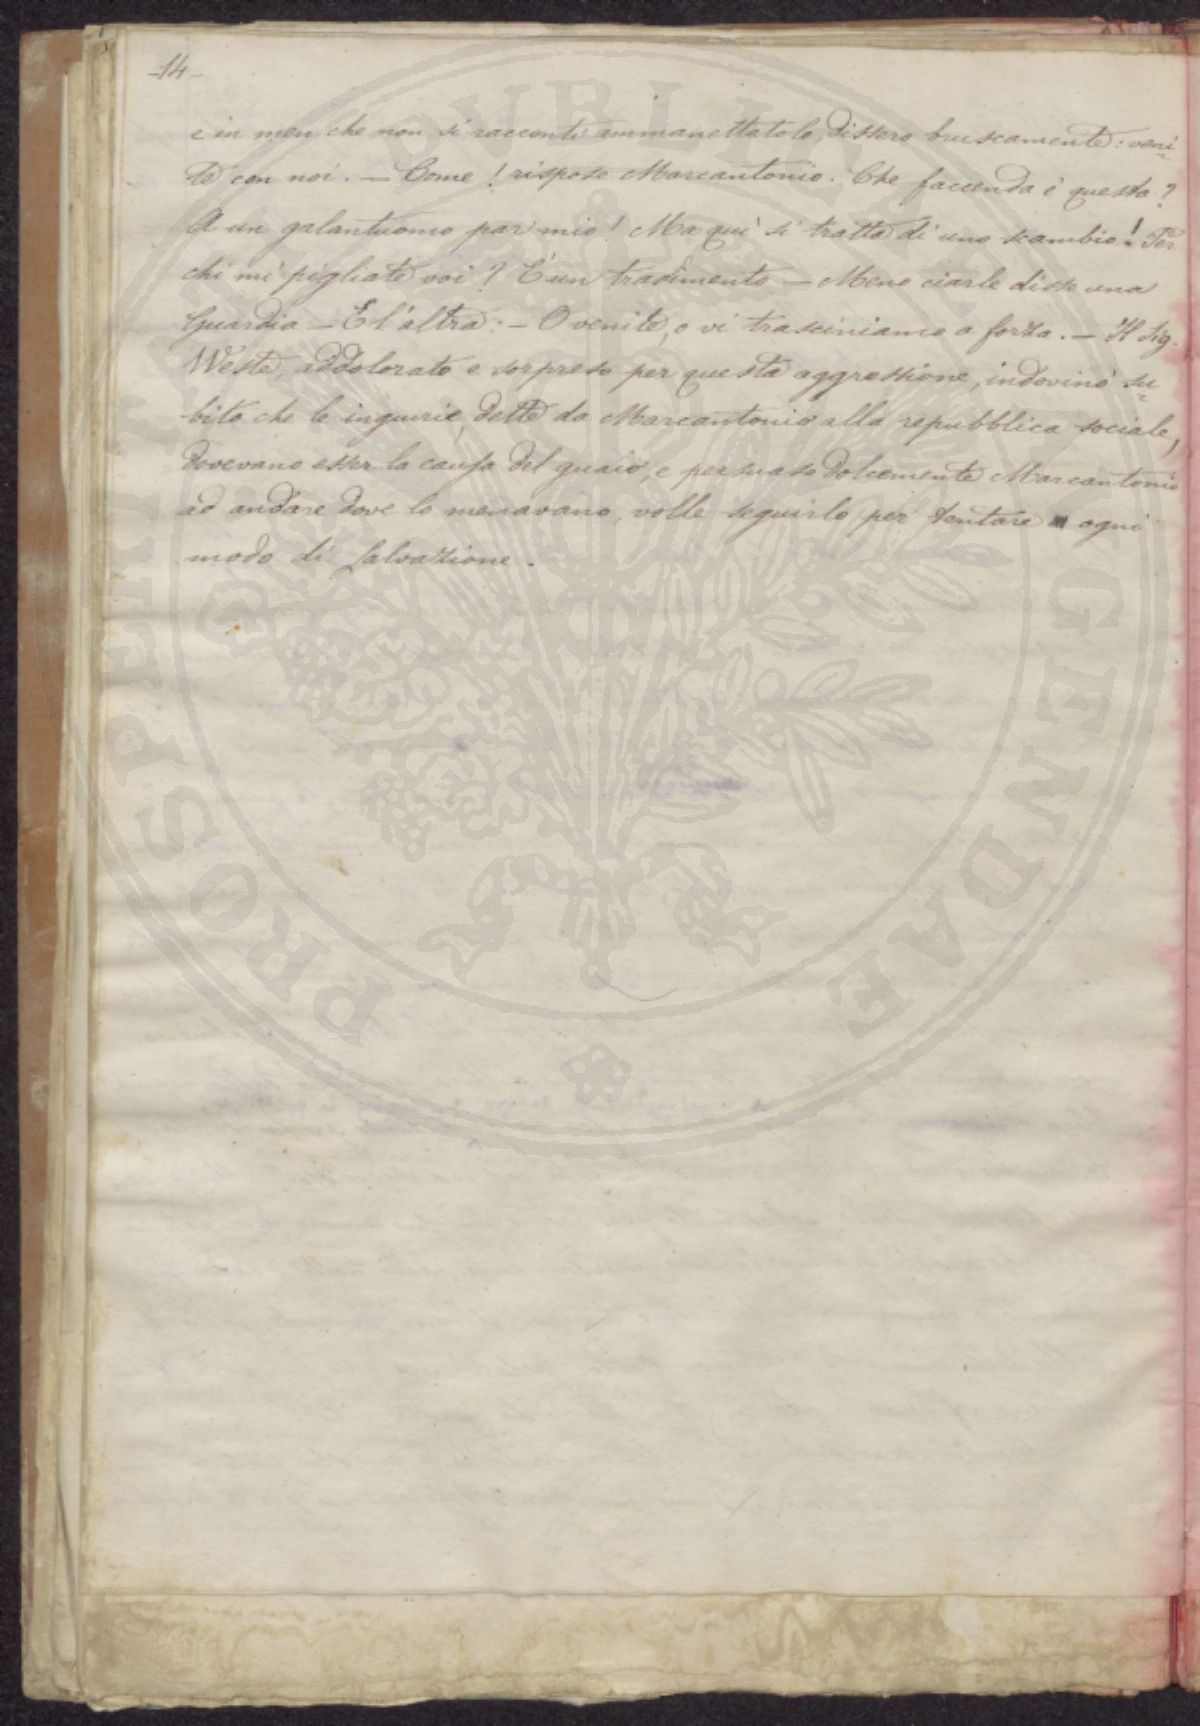 -14-
e in men che non si racconti ammanettatolo, dissero bruscamente: veni-
te con noi. — Come! rispose Marcantonio. Che faccenda è questa?
A un galantuomo par mio! Ma qui si tratta di uno scambio! Per
chi mi pigliate voi? È un tradimento — Meno ciarle disse una
Guardia — E l'altra: — O venite, o vi trasciniamo a forza. — Il Sig.
Weste, addolorato e sorpreso per questa aggressione, indovinò su-
bito che le ingiurie, dette da Marcantonio alla repubblica sociale,
dovevano esser la causa del guaio, e persuaso dolcemente Marcantonio
ad andare dove lo menavano, volle seguirlo per tentare ogni
modo di salvazione.
PROSPERITATI PUBLICAE AUGENDAE